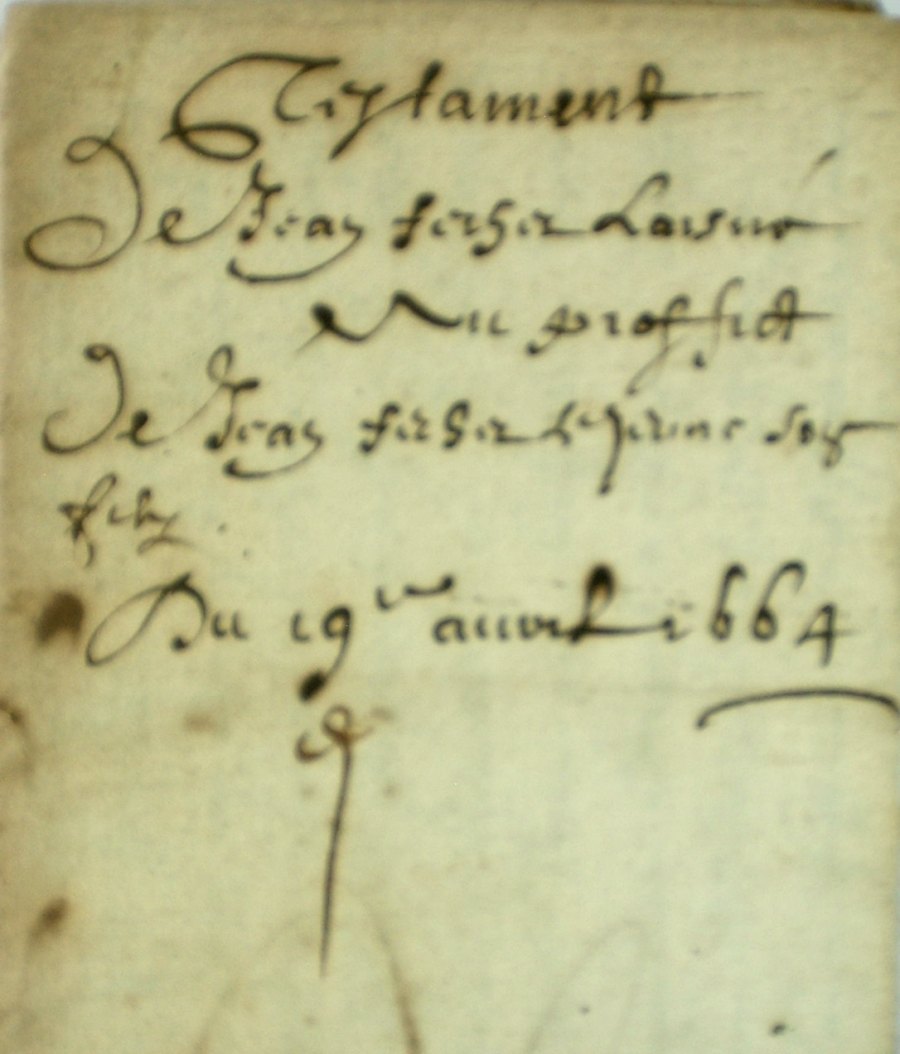 Testament
De Jean ferher Laisné
Au proffict
De Jean ferher Le Jeune son
filz
Du 19me auvril 1664